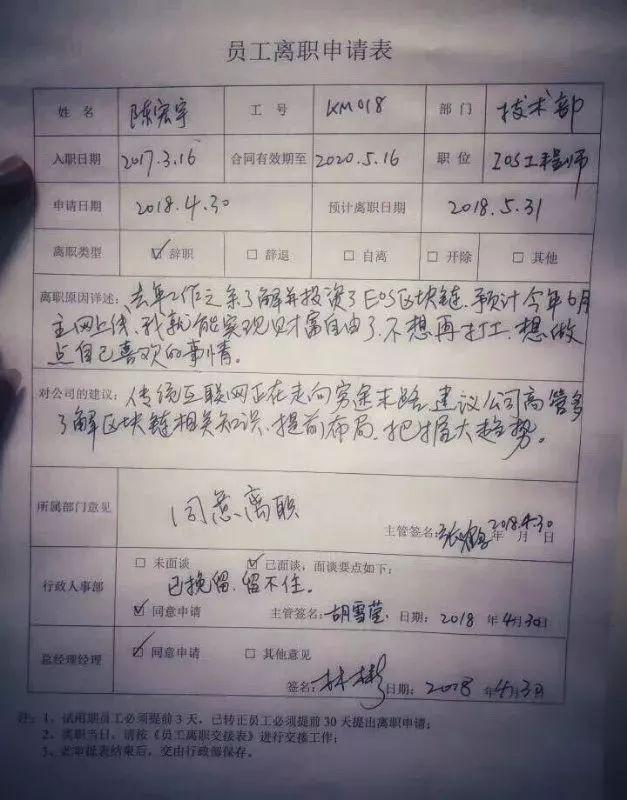 员工离职申请表
姓 名 陈宏宇 工 号 KM018 部 门 技术部
入职日期 2017.3.16 合同有效期至 2020.5.16 职 位 IOS工程师
申请日期 2018.4.30 预计离职日期 2018.5.31
离职类型 ☑辞职 □辞退 □自离 □开除 □其他
离职原因详述：去年工作之余了解并投资了EOS区块链、预计今年6月
主网上线、我就能实现财富自由了、不想再打工、想做
点自己喜欢的事情。
对公司的建议：传统互联网正在走向穷途末路、建议公司高管多
了解区块链相关知识、提前布局、把握大趋势。
所属部门意见 同意离职
主管签名： 2018.4.30 年 月 日
行政人事部 □ 未面谈 ☑ 已面谈，面谈要点如下：
已挽留、留不住。
☑ 同意申请 主管签名：胡雪莹 日期：2018 年4月30日
总经理经理 ☑ 同意申请 □ 其他意见
签名：林彬 日期：2018 年4月3日
注：1、试用期员工必须提前3天，已转正员工必须提前30天提出离职申请；
2、离职当日，请按《员工离职交接表》进行交接工作；
3、此审批表结束后，交由行政部保存。